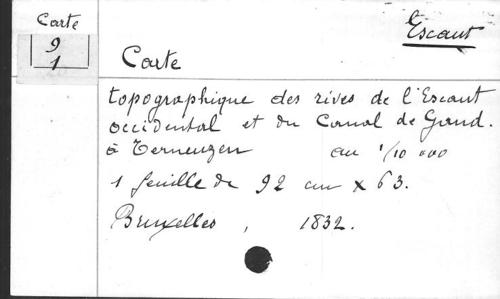 Carte
9
1
Escaut
Carte
topographique des rives de l'Escaut
occidental et du Canal de Gand.
à Terneuzen au 1/10 000
1 feuille de 92 cm x 63.
Bruxelles, 1832.